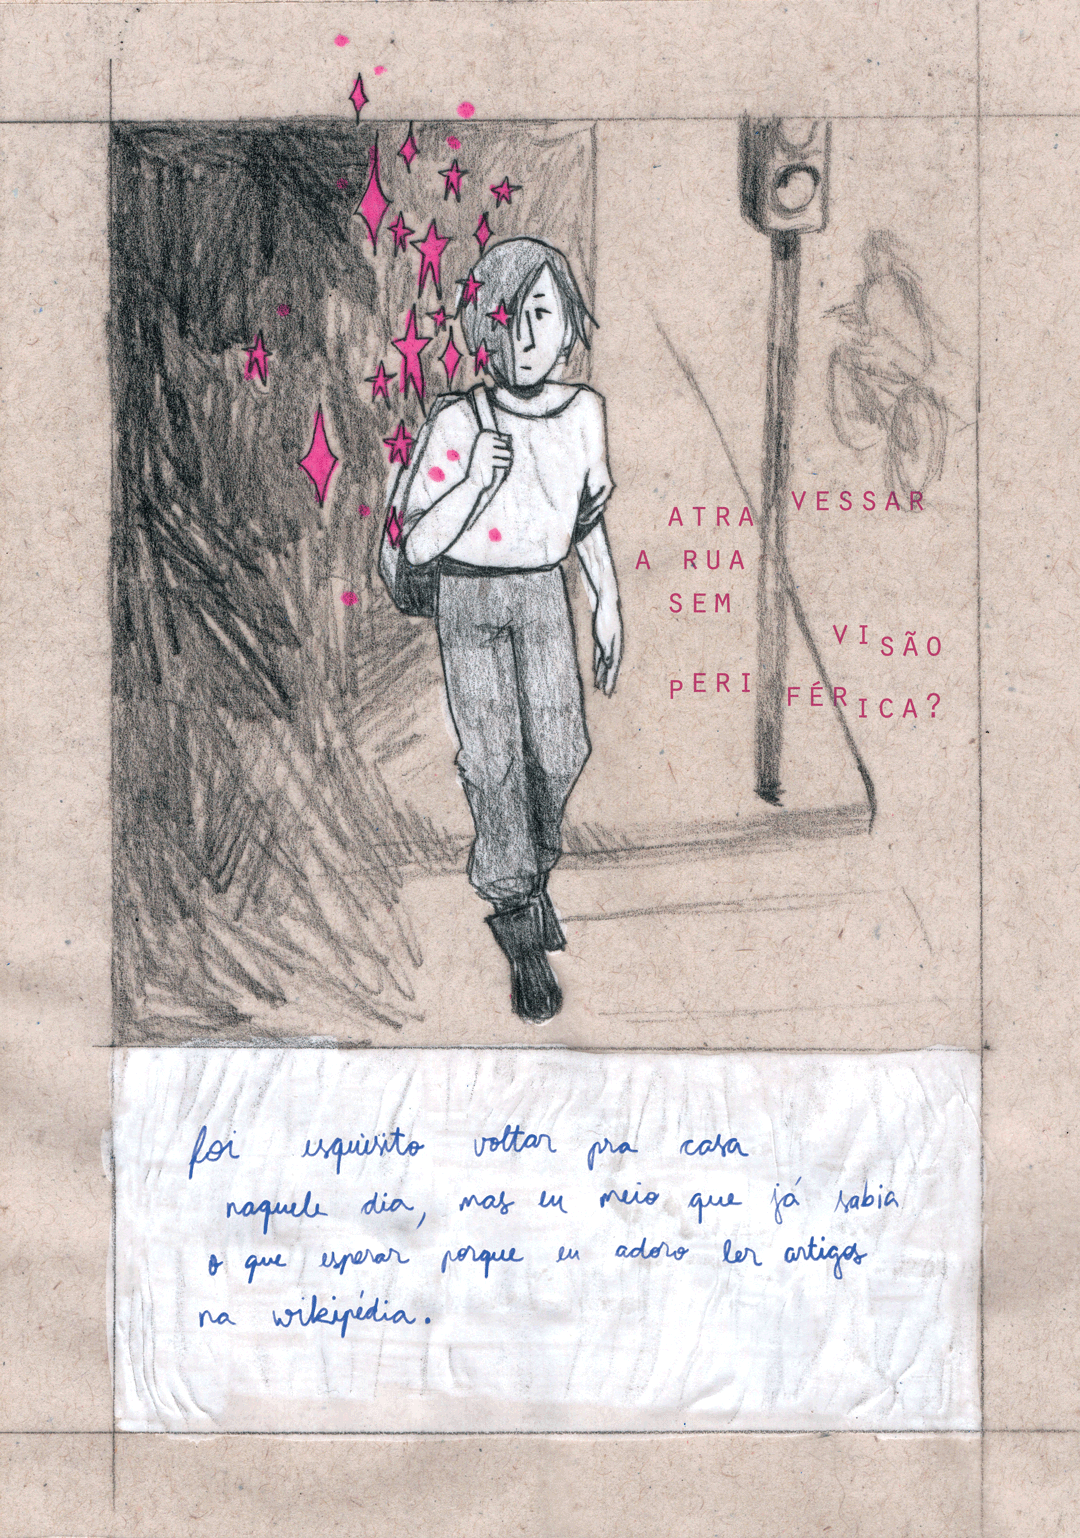 ATRA VESSAR
A RUA
SEM
VISÃO
PERI FÉRICA?
foi esquisito voltar pra casa
naquele dia, mas eu meio que já sabia
o que esperar porque eu adoro ler artigos
na wikipédia.